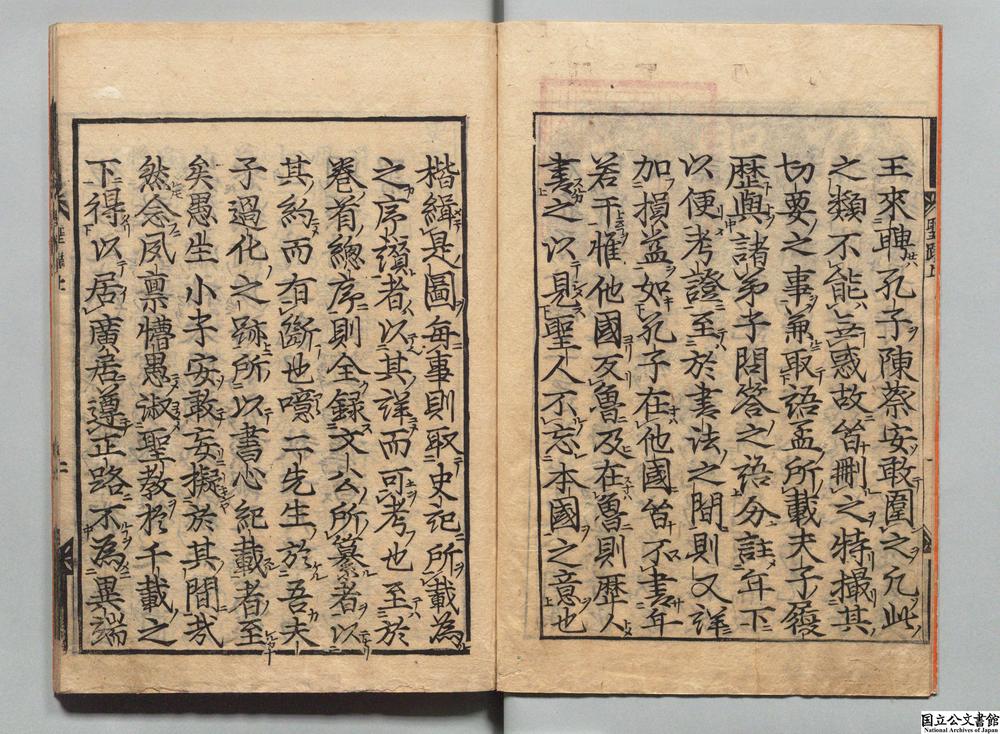 王來聘孔子陳蔡安敢圍之凡此
之類不能無惑故皆刪之特撮其
切要之事兼取語孟所載夫子履
歴與諸弟子問答之語分註年下
以便考證至於書法之間則又詳
加損益如孔子在他國皆不書年
若干惟他國反魯及在魯則歴
書之以見聖人不忘本國之意也
楷緝是圖每事則取史記所載為
之序讀者以其詳而可考也至於
卷首總序則全録文公所纂者以
其約而有斷也噫二先生於吾夫
子過化之跡所以書心紀載者至
矣愚生小子安敢妄擬於其間哉
然念夙禀懵愚淑聖教於千載之
下得以居廣居遵正路不為異端
聖蹟上
国立公文書館
National Archives of Japan